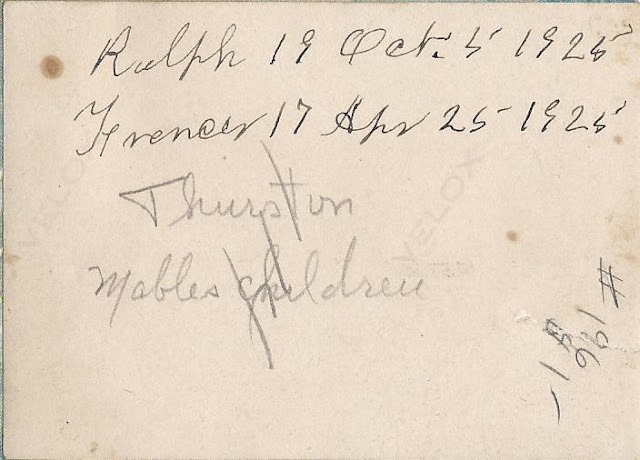 Ralph 19 Oct. 5 1925
Frences 17 Apr 25 1925
Thurston
Mables children
VELOX
VELOX